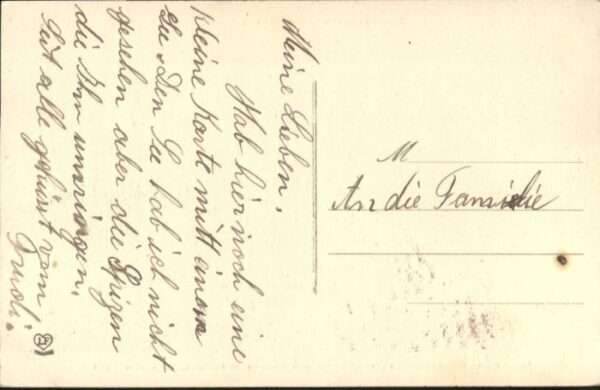 Meine Lieben.
Hab hier noch eine
kleine Karte mitt einem
See. Den See hab ich nicht
gesehen aber die Spizen
die Ihn umringen.
Seit alle geküsst vom
Trudi.
M
An die Familie